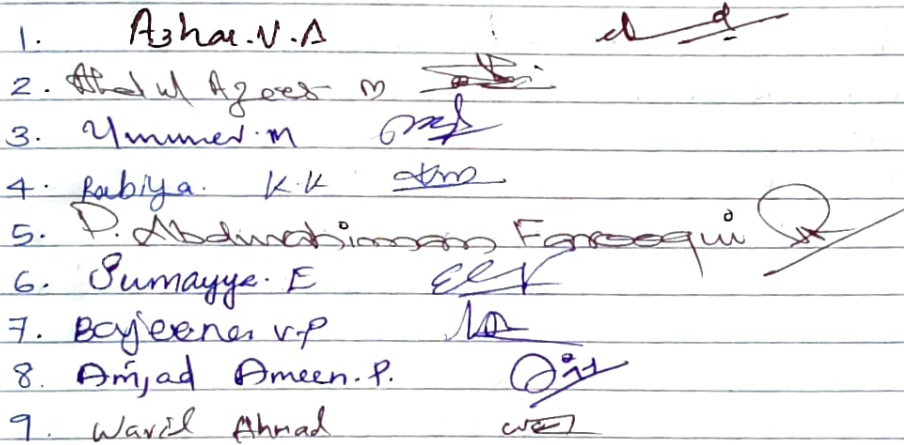 1. Azhar.V.A
2. Abdul Azeez M
3. Ummer.M
4. Rabiya. K.K
5. P. Abdurahiman Farooqui
6. Sumayye. E
7. Bajeena V.P
8. Amjad Ameen.P.
9. Waril Ahmad